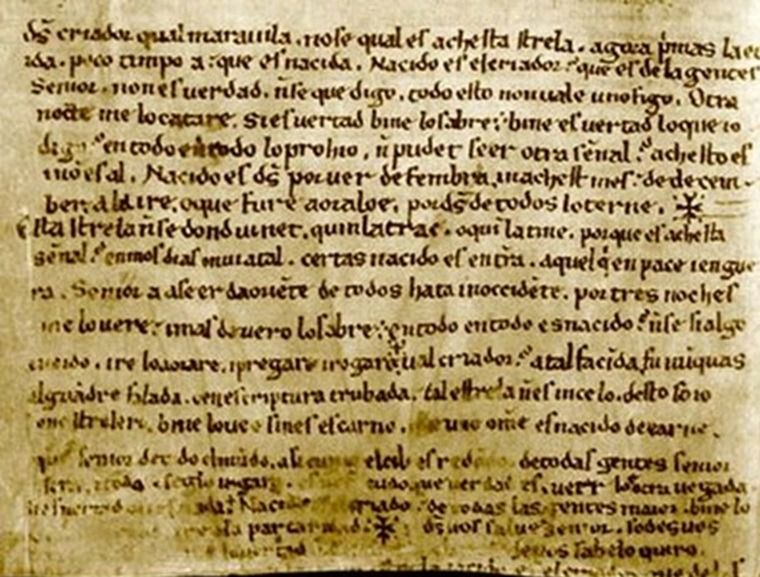 ds̄ criador qual marauila . no se qual es achesta strela . agora p̄mas la e u
eida . poco timpo a : que es nacida . Nacido es el criador : que es de la gentes
Senior . non es uerdad . ñ se que digo . todo esto non uale uno figo . Otra
nocte me lo catare . Si es uertad bine lo sabre : bine es uertad lo que io
digo : en todo en todo lo prohio . ñ pudet seer otra señal : achesto es
i nō es al . Nacido es ds̄ por uer de fembra . in achest mes : de decem
ber . a la ire . o que fure aoralo e . por ds̄ de todos lo terne .
Esta strela ñ se dond uinet . quin la trae . o qui la tine . por que es achesta
señal : en mos dias nō ui atal . certas nacido es en tirā . aquel q̄ en pace i en gue
ra . Senior a a seer da oriēte de todos hata in occidēte . por tres noches
me lo uere : i mas de uero lo sabre : en todo en todo es nacido : ñ se si algo
e ueido . ire lo aorare . i pregare i rogare ual criador : atal facīda fu nūquas
alguādre falada . o en escriptura trubada . tal estrela ñ es in celo . desto so io
bono strelero . bine lo ueo sines escarno . que uno om̄e es nacido de carne .
que senior de todo el mūdo . asi cumo el cilo es redōdo . de todas gentes senior
sera . i todo seglo iugara . cudo que uerdad es . ueer lo e otra uegada
si es uertad nada : Nacido criador . de todas las gentes maior . bine lo
ala par caridad . ds̄ uos salue senior . sodes uos
uertad de uos sabelo quiro .